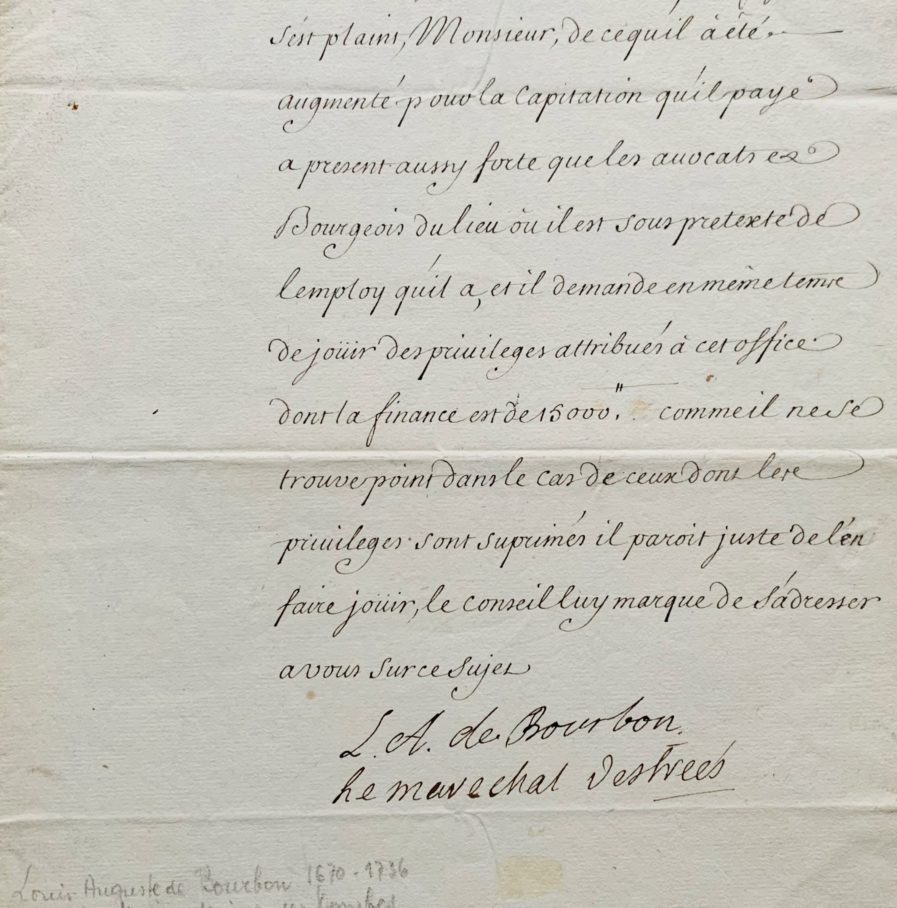 s'est plaint, Monsieur, de cequ'il à été
augmenté pour la Capitation qu'il paye
a present aussy forte que les avocats et
Bourgeois du lieu òu il est sous pretexte de
l'employ qu'il a, et il demande en même temps
de joüir des privileges attribués à cet office
dont la finance est de 15000.'' comme il ne se
trouve point dans le cas de ceux dont les
privileges sont suprimés il paroit juste de l'en
faire joüir, le Conseil luy marque de s'adresser
a vous sur ce sujet
L. A. de Bourbon.
Le marechal Destreés
Louis Auguste de Bourbon 1670-1736